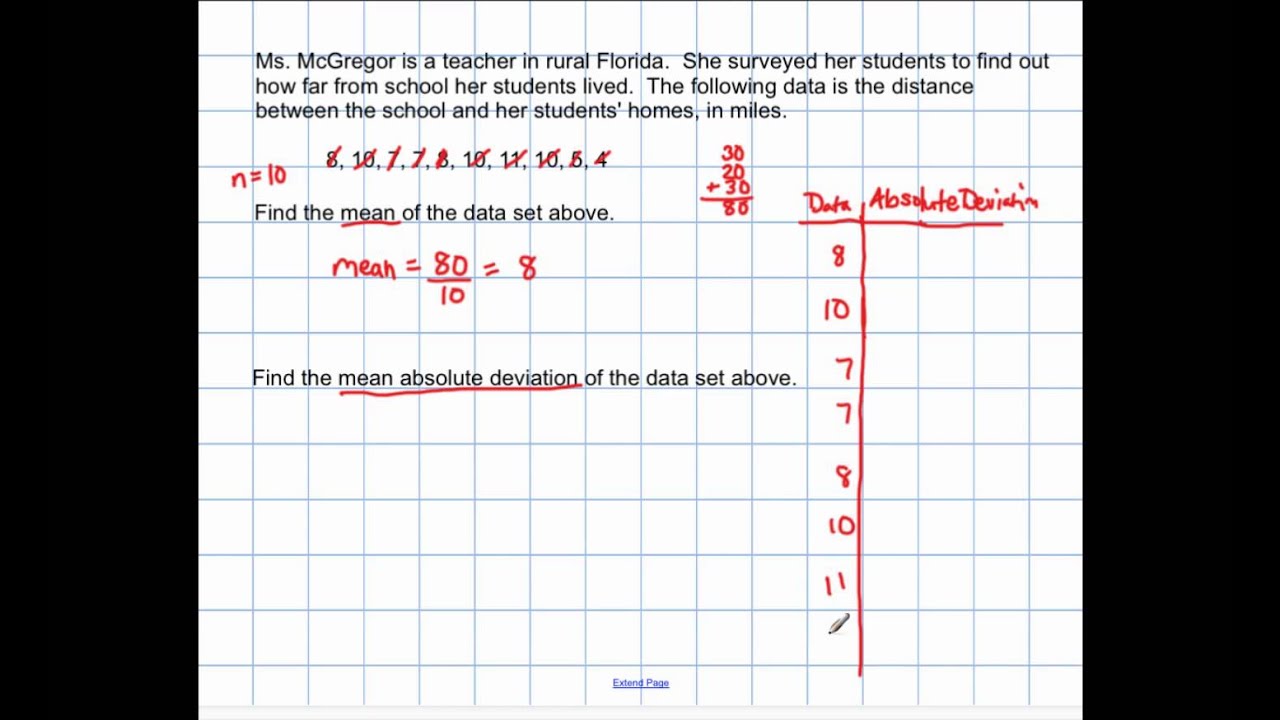 Ms. McGregor is a teacher in rural Florida. She surveyed her students to find out
how far from school her students lived. The following data is the distance
between the school and her students' homes, in miles.
8, 10, 7, 7, 8, 10, 11, 10, 5, 4
n=10
30
20
+ 30
80
Find the mean of the data set above.
mean = 80/10 = 8
Find the mean absolute deviation of the data set above.
Data Absolute Deviation
8
10
7
7
8
10
11
Extend Page